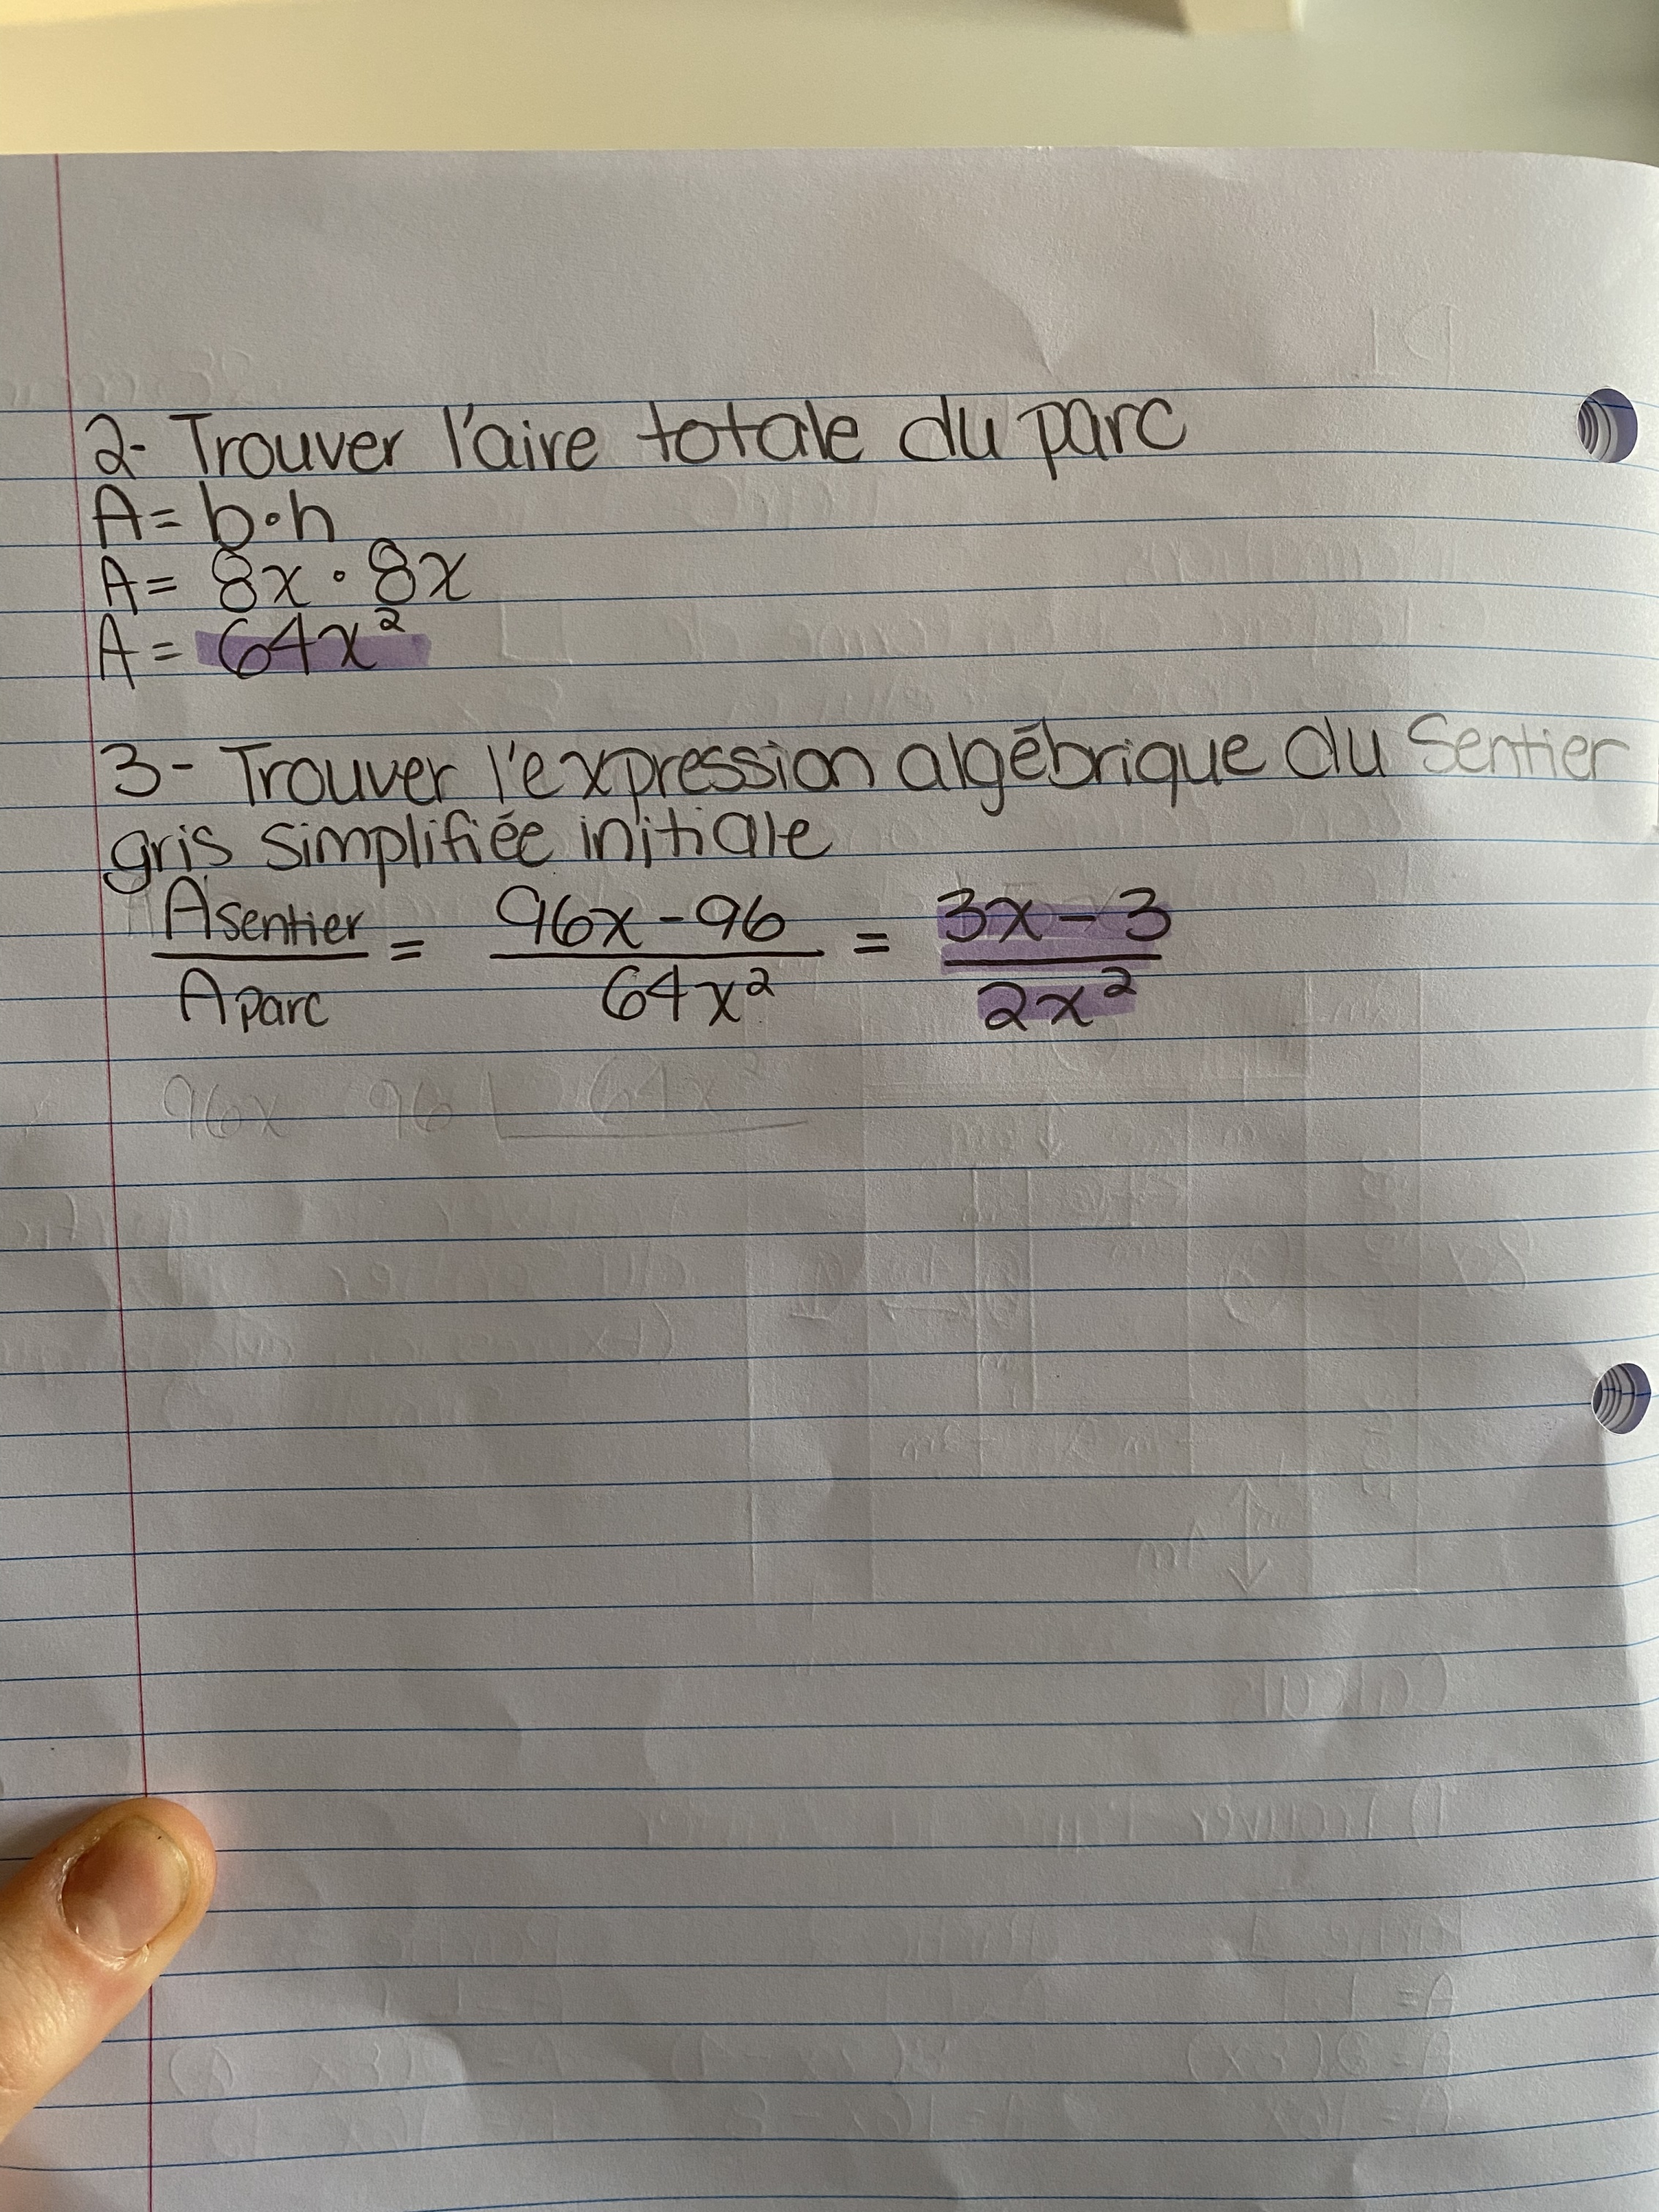 2- Trouver l'aire totale du parc
A = b•h
A = 8x • 8x
A = 64x²
3- Trouver l'expression algébrique du Sentier
gris simplifiée initiale
Asentier / Aparc = 96x - 96 / 64x² = 3x - 3 / 2x²
96x 96 64x²